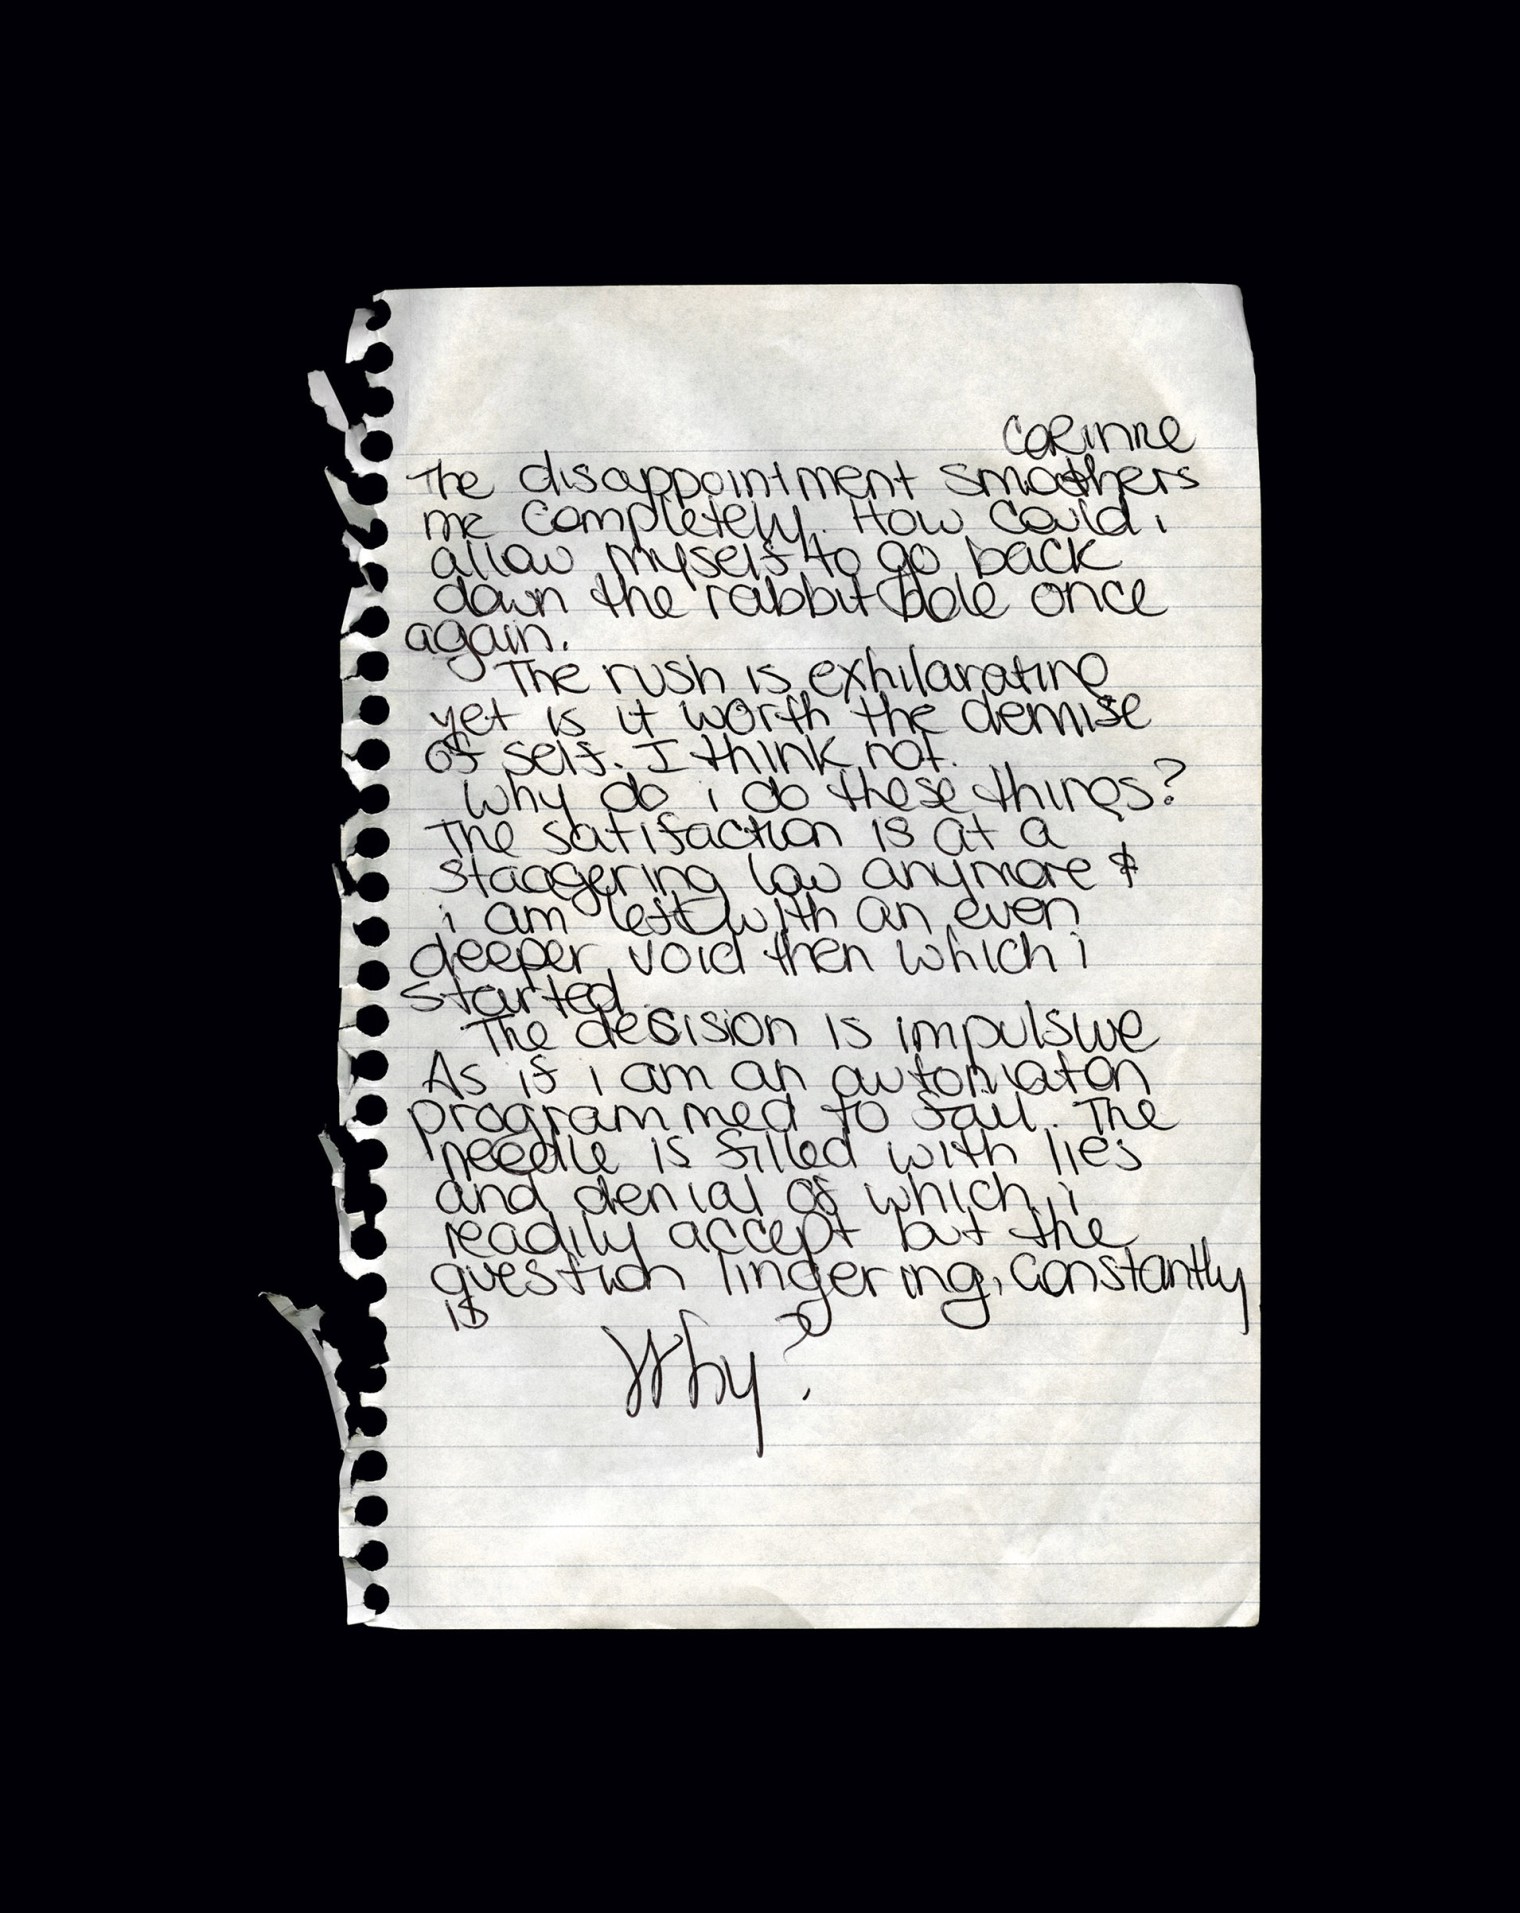 Corinne
The disappointment smothers
me completely. How could i
allow myself to go back
down the rabbit hole once
again.
The rush is exhilarating
yet is it worth the demise
of self. I think not.
Why do i do these things?
The satifaction is at a
staggering low anymore &
i am left with an even
deeper void then which i
started.
The decision is impulsive
As if i am an automaton
programmed to fail. The
needle is filled with lies
and denial of which i
readily accept but the
question lingering, constantly
is
Why?